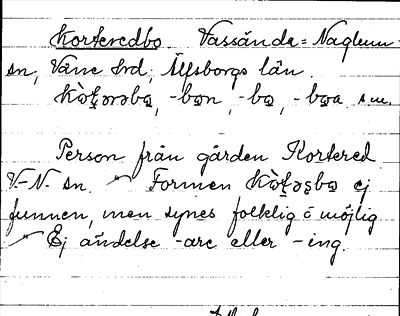 Korteredbo Vassända-Naglum
sn, Väne hrd, Älfsborgs län.
-bǫn, -bǫ, -bǫa sm.
Person från gården Kortered
V.-N. sn. Formen ej
funnen, men synes folklig o möjlig
Ej ändelse -are eller -ing.